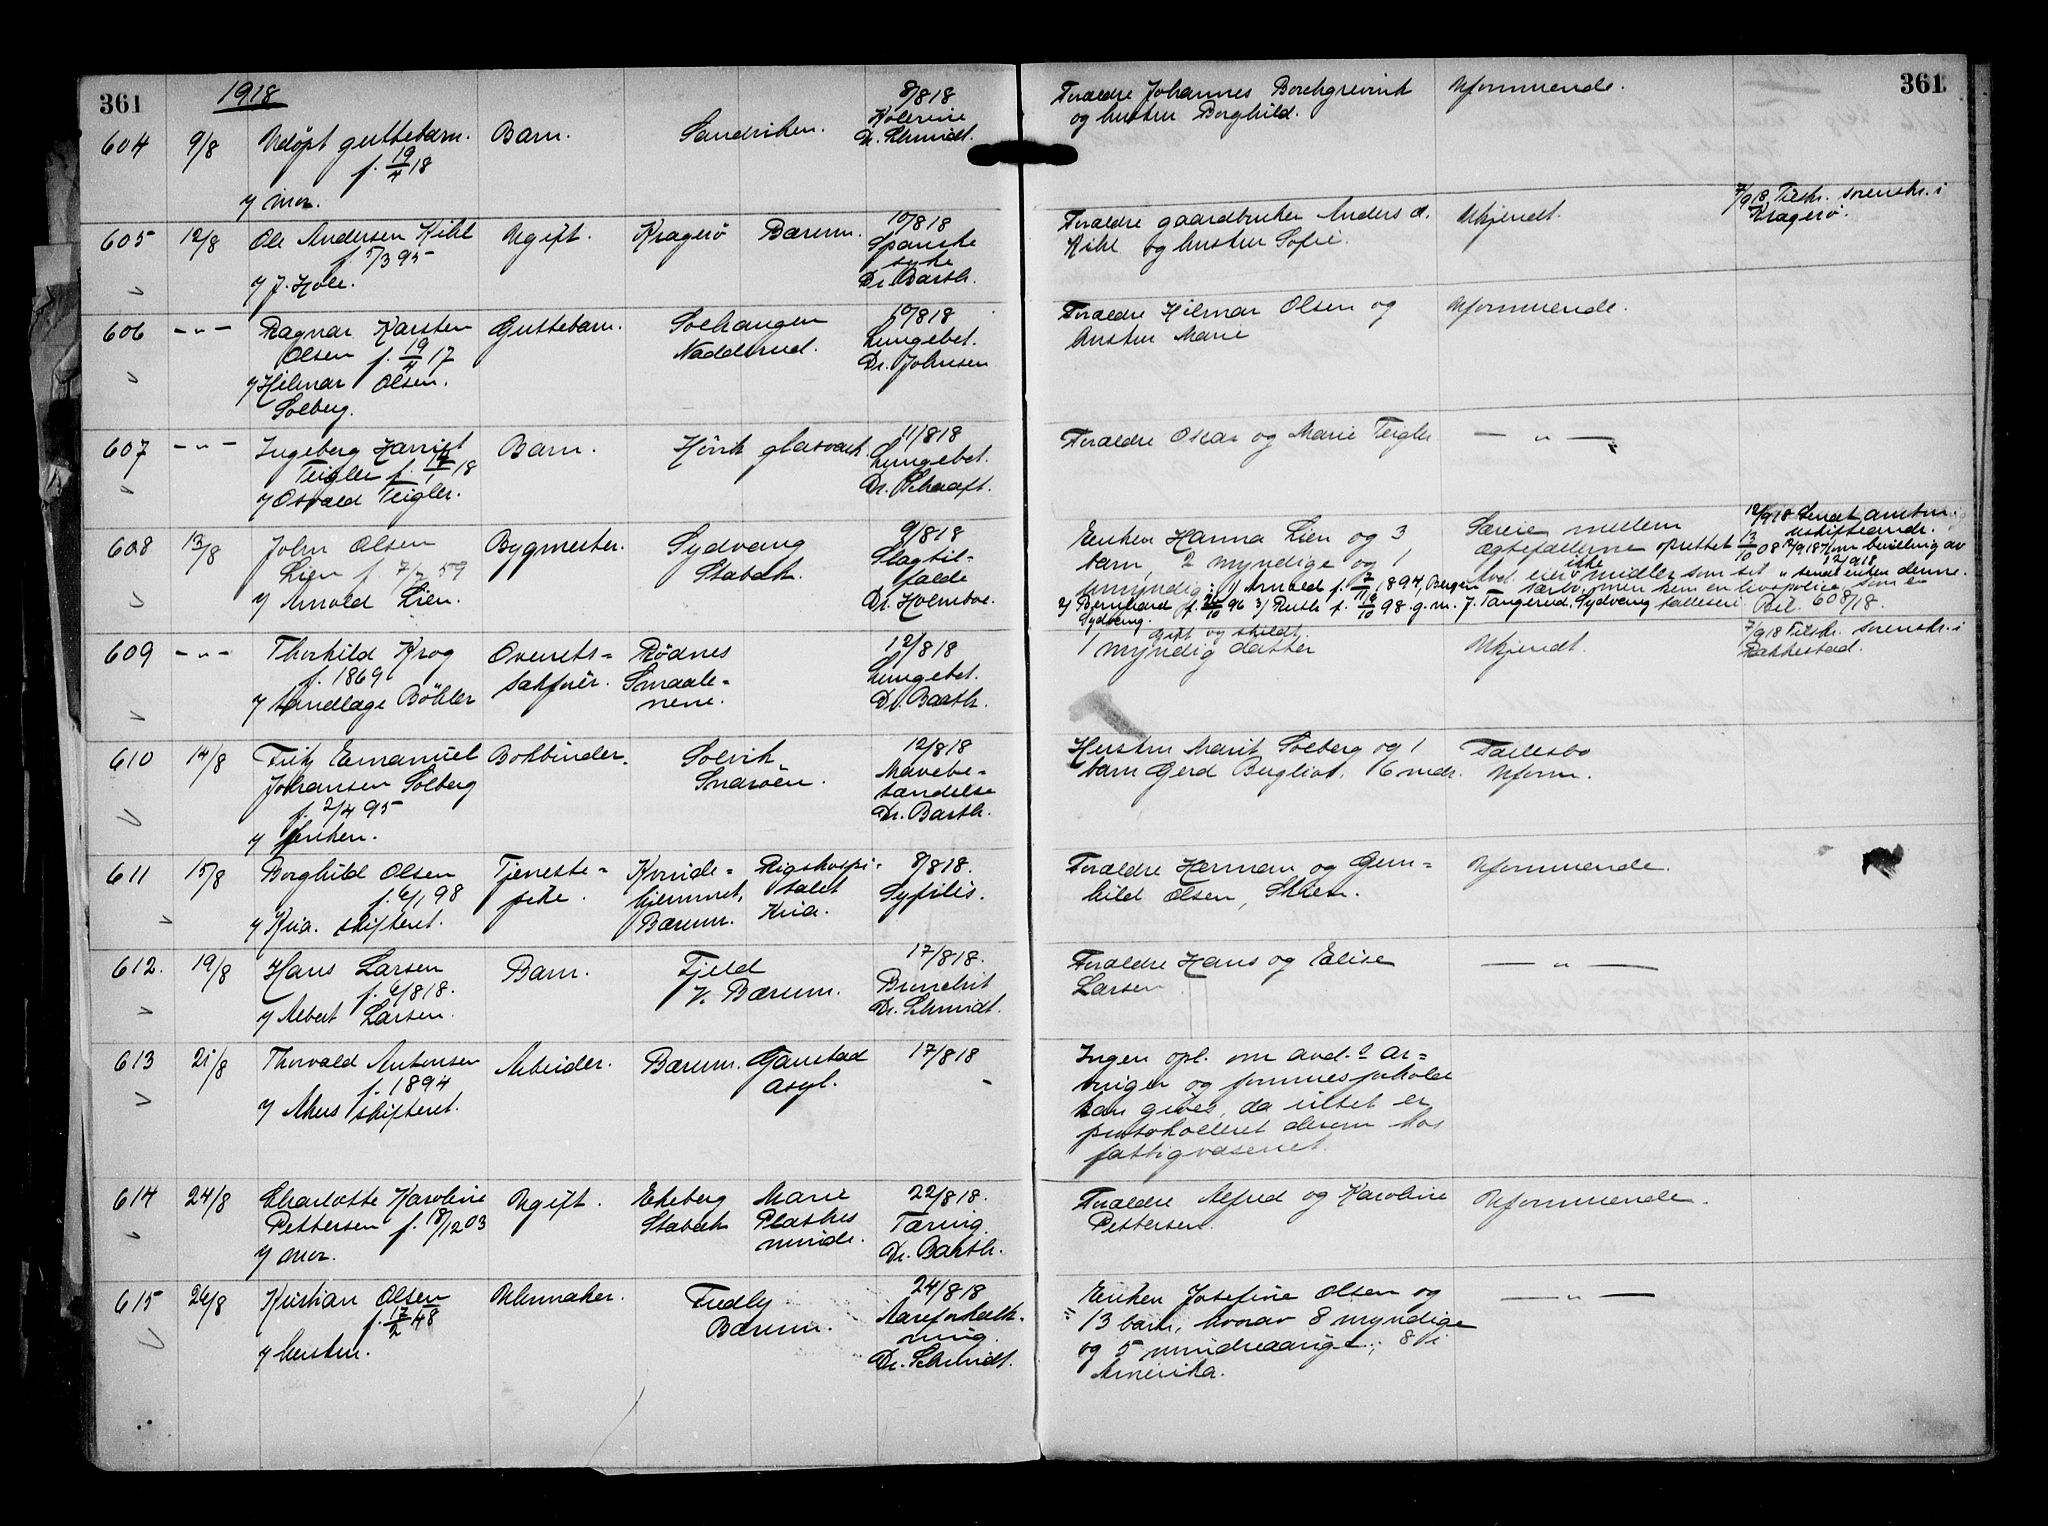 361
1918
361
604
9/8
Udöpt guttebarn.
f. 19/4 18
v/ mor.
Barn.
Sandviken.
8/8 18
Kolerine
Dr. Schmidt.
Foræl​dre Johannes Borchgrevink
og hustru Borghild.
Uformuende.
605
12/8
Ole Andersen Kihl
f. 5/3 95
v/ J. Hole.
Ugift.
Kragerö
Bærum.
10/8 18
Spanske
syke
Dr. Barth.
Forældre gaardbruker Anders A.
Kihl og hustru Sofie.
Ukjendt.
7/9 18 Tilskr. sorenskr. i
Kragerö.
606
— " —
Ragnar Karsten
Olsen f. 19/4 17
v/ Hilmar Olsen.
Solberg.
Guttebarn.
Solhaugen
Nadderud.
10/8 18
Lungebet.
Dr. Johnsen
Forældre Hilmar Olsen og
hustru Marie
Uformuende.
607
— " —
Ingeborg Harriet
Teigler f. 14/1 18
v/ Osvald Teigler.
Barn.
Hövik glasværk.
11/8 18
Lungebet.
Dr. Schaaft.
Forældre Oskar og Marie Teigler
— " —
608
13/8
John Olsen
Lien f. 7/7 59
v/ Arnold Lien.
Bygmester.
Sydvang
Stabæk.
9/8 18
Slagtil-
fælde
Dr. Holmboe.
Enken Hanna Lien og 3
barn, 2 myndige og 1
umyndig: 1/ Arnold f. 1894, Bergen
2/ Bernhard f. 26/10 96 3/ Ruth f. 6/10 98. g. m. J. Tangerud, Sydvang
Sydvang.
Særeie mellem
ægtefællerne oprettet 13/10 08
Avd. eier ikke midler som set
særbo, men kun en livspolice som er
fælleseie
12/9 18 Sendt
12/9 18
Bil. 608/18.
609
— " —
Thorkild Krog
f. 1869
v/ tandlæge Böhler
Overrets=
sakförer.
Rödnes
Smaale=
nene.
12/8 18
Lungebet.
Dr. Barth.
gift og skildt.
1 myndig datter
Ukjendt.
7/9 18 Tilskr. sorenskr. i
Rakkestad.
610
14/8
Fritz Emanuel
Johansen Solberg
f. 2/4 95
v/ enken.
Bokbinder.
Solvik
Snaröen.
12/8 18
Mavebe-
tændelse
Dr. Barth.
Hustru Marit Solberg og 1
barn Gerd Bergliot, 16 mdr.
Fællesbo
Uform.
611
15/8
Borghild Olsen
f. 6/1 98
v/ Kria. skifteret.
Tjeneste=
pike.
Kvinde=
hjemmet,
Bærum.
Rigshospi-
talet
Kria.
8/8 18.
Syfilis.
Forældre Herman og Gun=
hild Olsen, Skien.
Uformuende.
612.
19/8
Hans Larsen
f. 6/8 18.
v/ Albert Larsen.
Barn.
Fjeld
V. Bærum.
17/8 18.
Brunchit
Dr. Schmidt.
Forældre Hans og Elise
Larsen
— " —
613
21/8
Thorvald Antonsen
f. 1894
v/ Akers skifteret.
Arbeider.
Bærum.
Gaustad
asyl.
17/8 18
-
Ingen opl. om avd.s ar=
vinger og formuesforhold
kan gives, da intet er
protokolleret derom hos
fattigvæsenet.
614
24/8
Charlotte Karoline
Pettersen f. 18/12 03
v/ mor.
Ugift.
Ekeberg
Stabæk
Marie
Plathes
minde.
22/8 18.
Tæring.
Dr. Barth.
Forældre Alfred og Karoline
Pettersen.
Uformuende.
615
26/8
Kristian Olsen
f. 17/2 48
v/ hustru.
Uhrmaker.
Fredly
Bærum.
24/8 18
Aareforkalk-
ning.
Dr. Schmidt.
Enken Josefine Olsen og
13 barn, hvorav 8 myndige
og 5 mindreaarige; 8 i
Amerika.
— " —